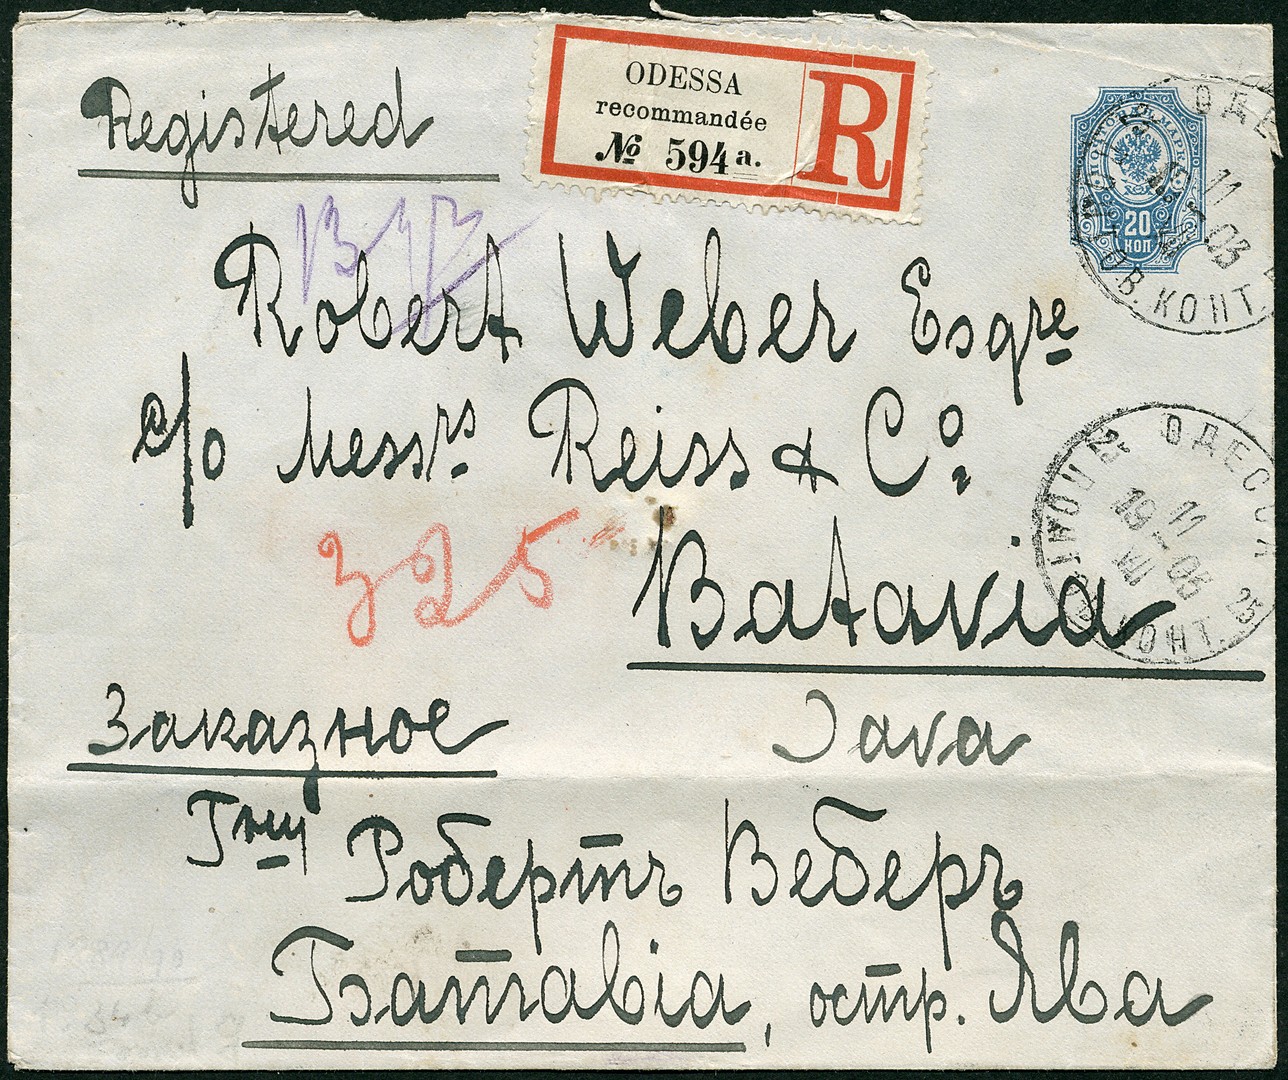 Registered
ODESSA
recommandée
№ 594a.
R
ПОЧТОВАЯ МАРКА
20
КОП
ОДЕ
11
03
В. КОНТ.
Robert Weber Esqre
c/o Messrs Reiss & Co.
325
ОДЕССА
25
11
19 05
VIII
25
КОНТ.
Batavia
Java
Заказное
Гну Робертъ Веберъ
Батавiа, остр. Ява